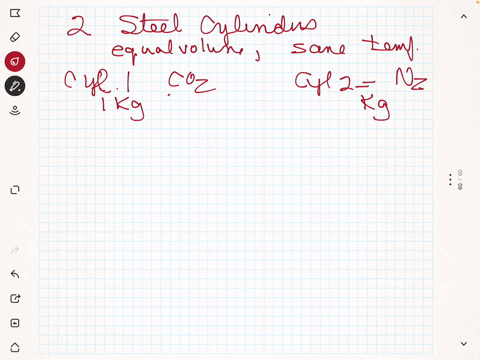 2 Steel Cylinders
equal volume, same temp.
Cyl. 1 CO2 Cyl 2 = N2
1 Kg Kg